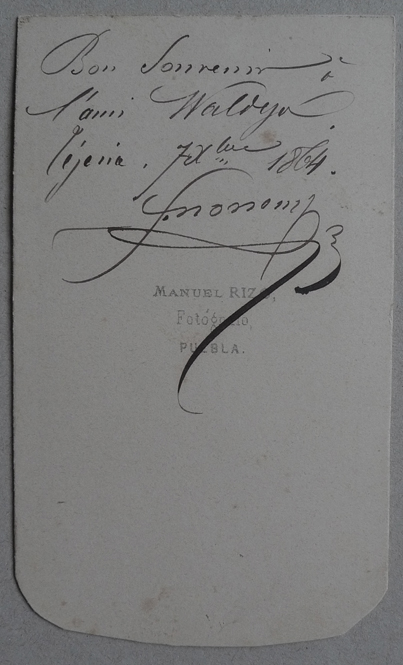 Bon Souvenir à
l'ami Waldejo
Téjeria. 7bre 1864.
MANUEL RIZO,
Fotógrafo,
PUEBLA.